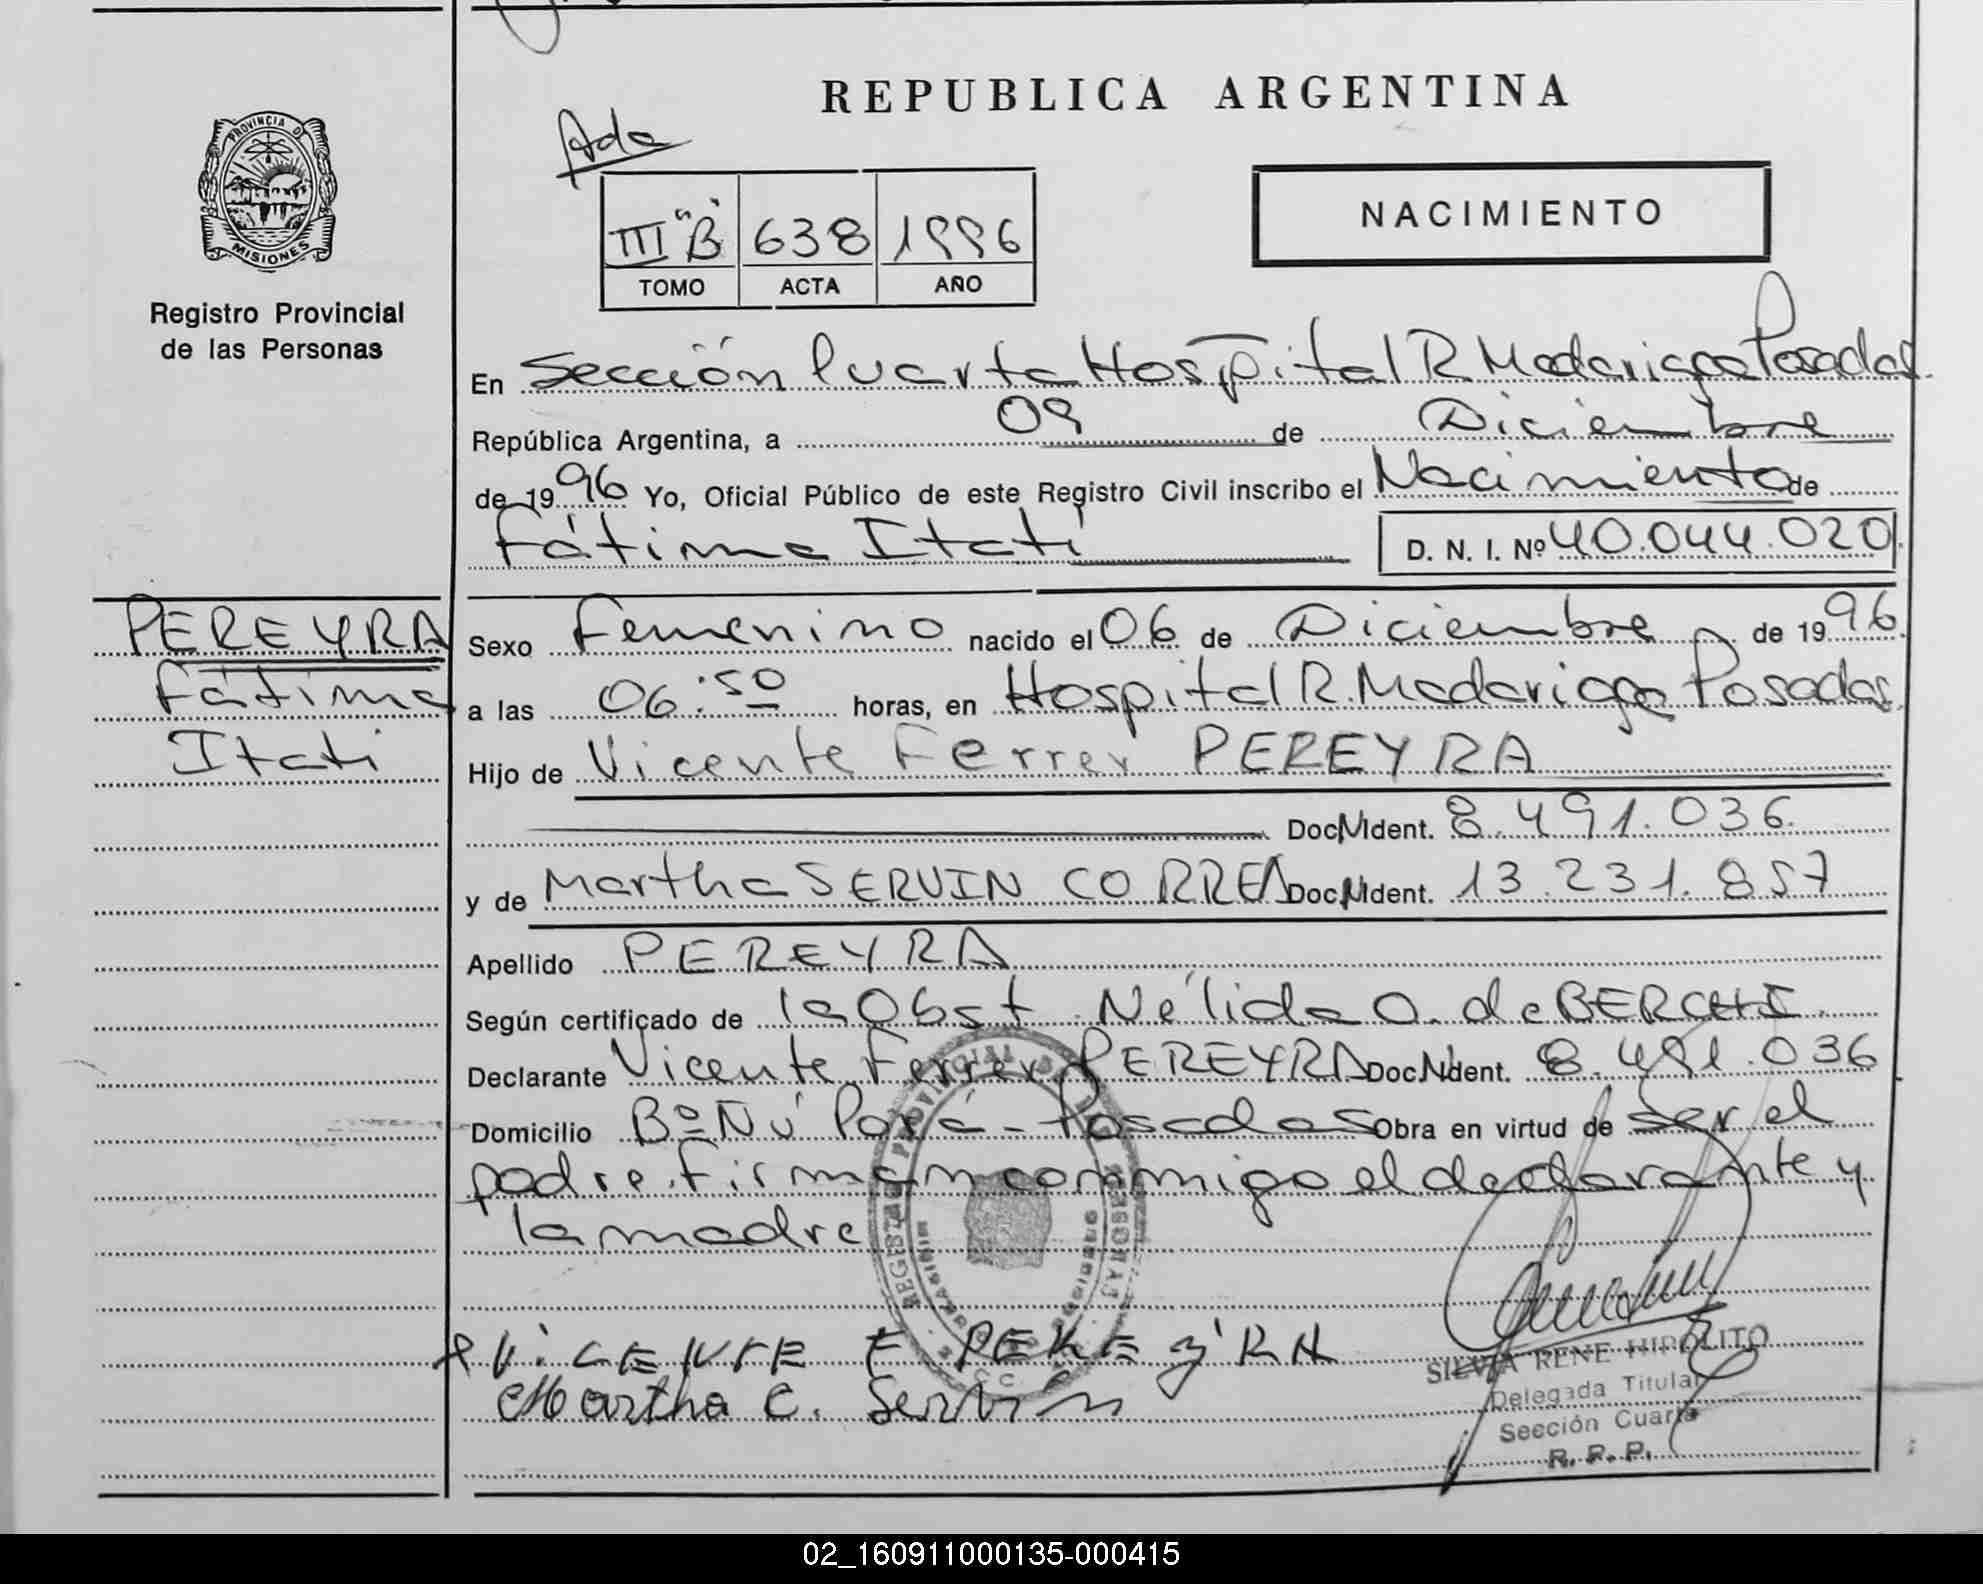 REPUBLICA ARGENTINA
PROVINCIA D
MISIONES
Registro Provincial
de las Personas
Ada
III "B" 638 1996
TOMO ACTA AÑO
NACIMIENTO
En Sección Cuarta Hospital R. Madariaga Posadas
República Argentina, a 09 de Diciembre
de 1996 Yo, Oficial Público de este Registro Civil inscribo el Nacimiento de
Fátima Itatí D. N. I. Nº 40.044.020
PEREYRA
Fátima
Itati
Sexo Femenino nacido el 06 de Diciembre de 1996
a las 06:50 horas, en Hospital R. Madariaga Posadas
Hijo de Vicente Ferrer PEREYRA
Doc. Ident. 8.491.036
y de Martha SERVIN CORREA Doc. Ident. 13.231.857
Apellido PEREYRA
Según certificado de la Obst Nélida O. de BERCHI
Declarante Vicente Ferrer PEREYRA Doc. Ident. 8.491.036
Domicilio Bº Ñú Porá - Posadas Obra en virtud de ser el
padre. firman conmigo el declarante y
la madre
VICENTE F PEREYRA
Martha C. Servín
SILVIA RENE HIPOLITO
Delegada Titular
Sección Cuarta
R. P. P.
02_160911000135-000415